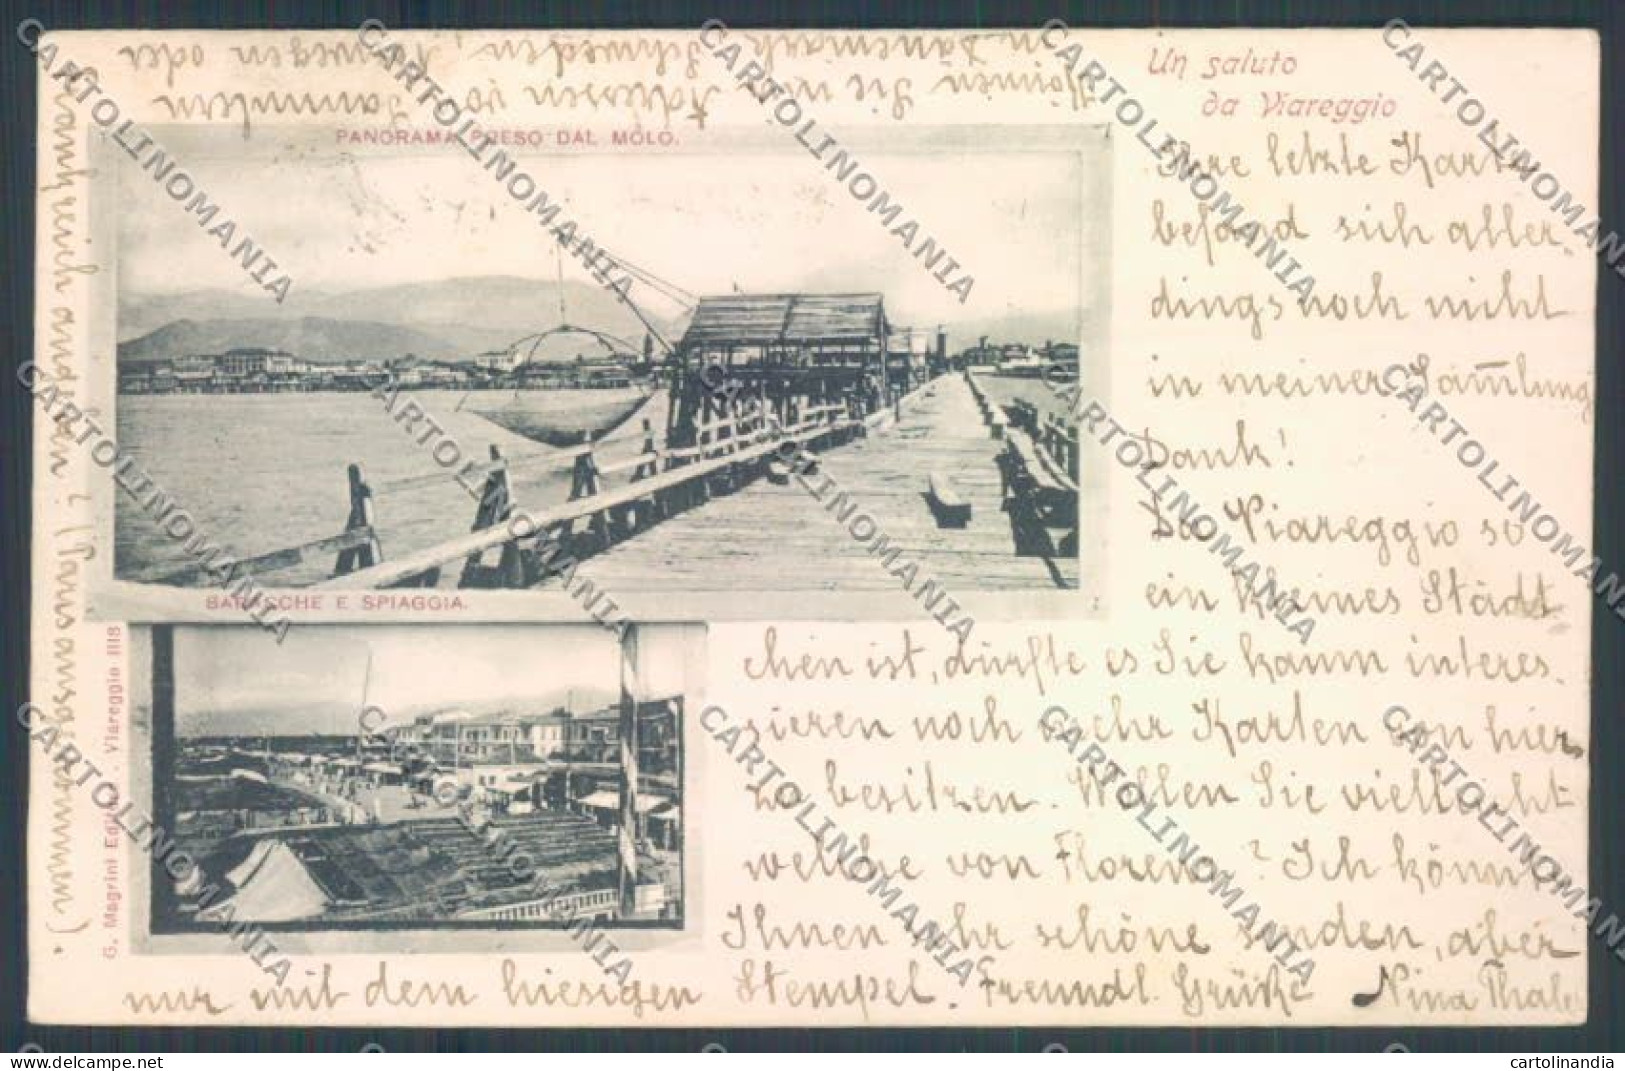 Un saluto
da Viareggio
PANORAMA PRESO DAL MOLO.
BARACCHE E SPIAGGIA.
G. Magrini Editore. Viareggio 1118
Ihre letzte Karte
befand sich aller-
dings noch nicht
in meiner Sam̅lung
Dank!
Da Viareggio so
ein kleines Städt
chen ist, dürfte es Sie kaum interes-
sieren noch mehr Karten von hier
zu besitzen. Wollen Sie vielleicht
welche von Florenz? Ich könnte
Ihnen sehr schöne senden, aber
nur mit dem hiesigen Stempel. Freundl. Grüße Nina Thaler
Können Sie mir Adressen von Sammlern
in Dänemark, Schweden, Norwegen oder
Frankreich angeben? (Paris ausgenommen).
CARTOLINOMANIA
www.delcampe.net
cartolinandia